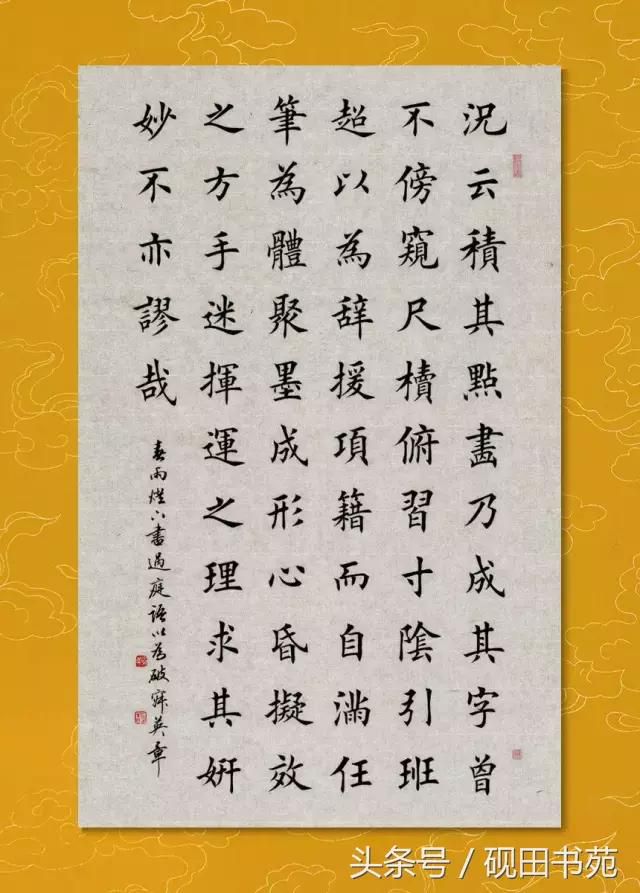 況云積其點畫乃成其字曾
不傍窺尺櫝俯習寸陰引班
超以為辭援項籍而自滿任
筆為體聚墨成形心昏擬效
之方手迷揮運之理求其妍
妙不亦謬哉
春雨燈下書過庭語以為破寂英章
头条号 / 砚田书苑